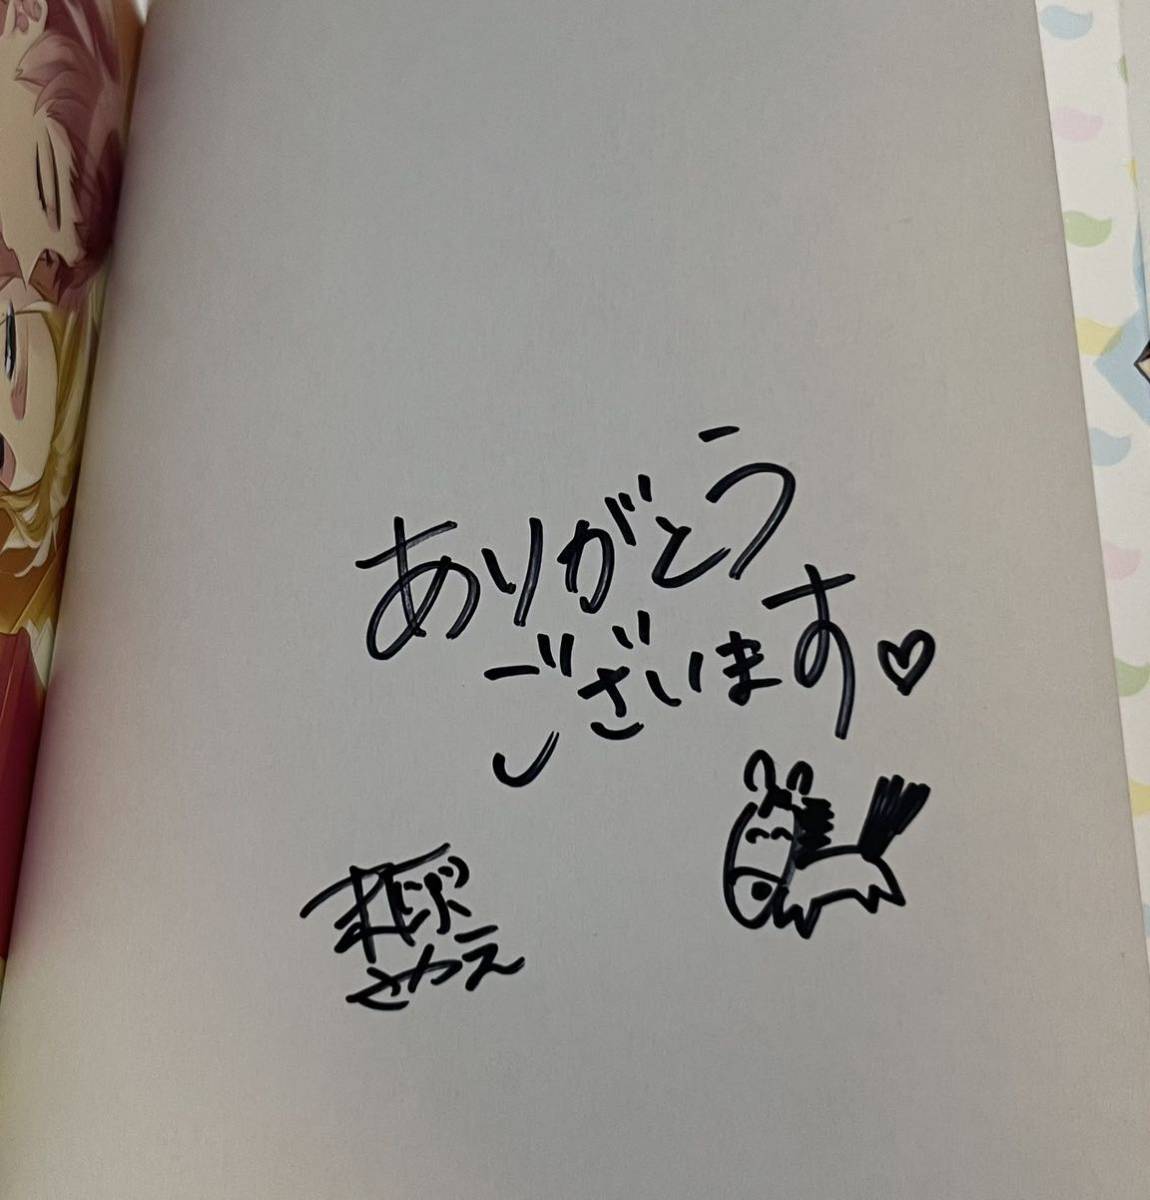 ありがとう
ございます♡
さかえ